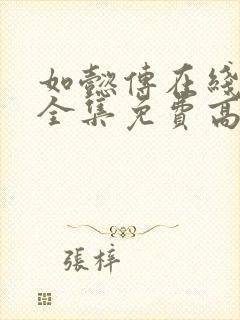 如懿傳在綫
全集免費高
張梓